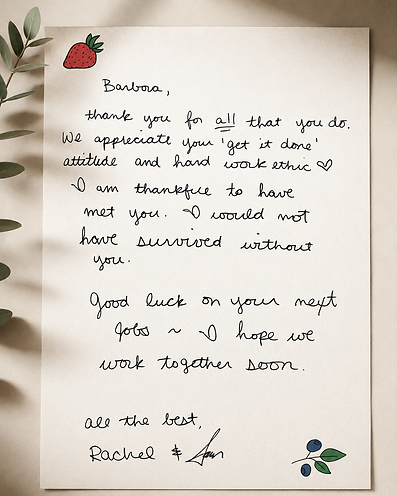 Barbora,
thank you for all that you do.
We appreciate your 'get it done'
attitude and hard work ethic ♡
I am thankful to have
met you. I would not
have survived without
you.
Good luck on your next
jobs ~ I hope we
work together soon.
all the best,
Rachel &